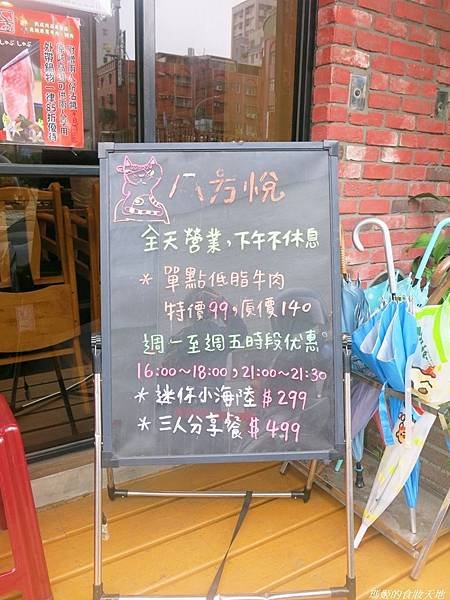 しゃぶしゃぶ
外帶鍋物一律85折優待
八方悅
全天營業,下午不休息
* 單點低脂牛肉
特價99,原價140
週一至週五時段优惠
16:00~18:00,21:00~21:30
* 迷你小海陸 $299
* 三人分享餐 $499